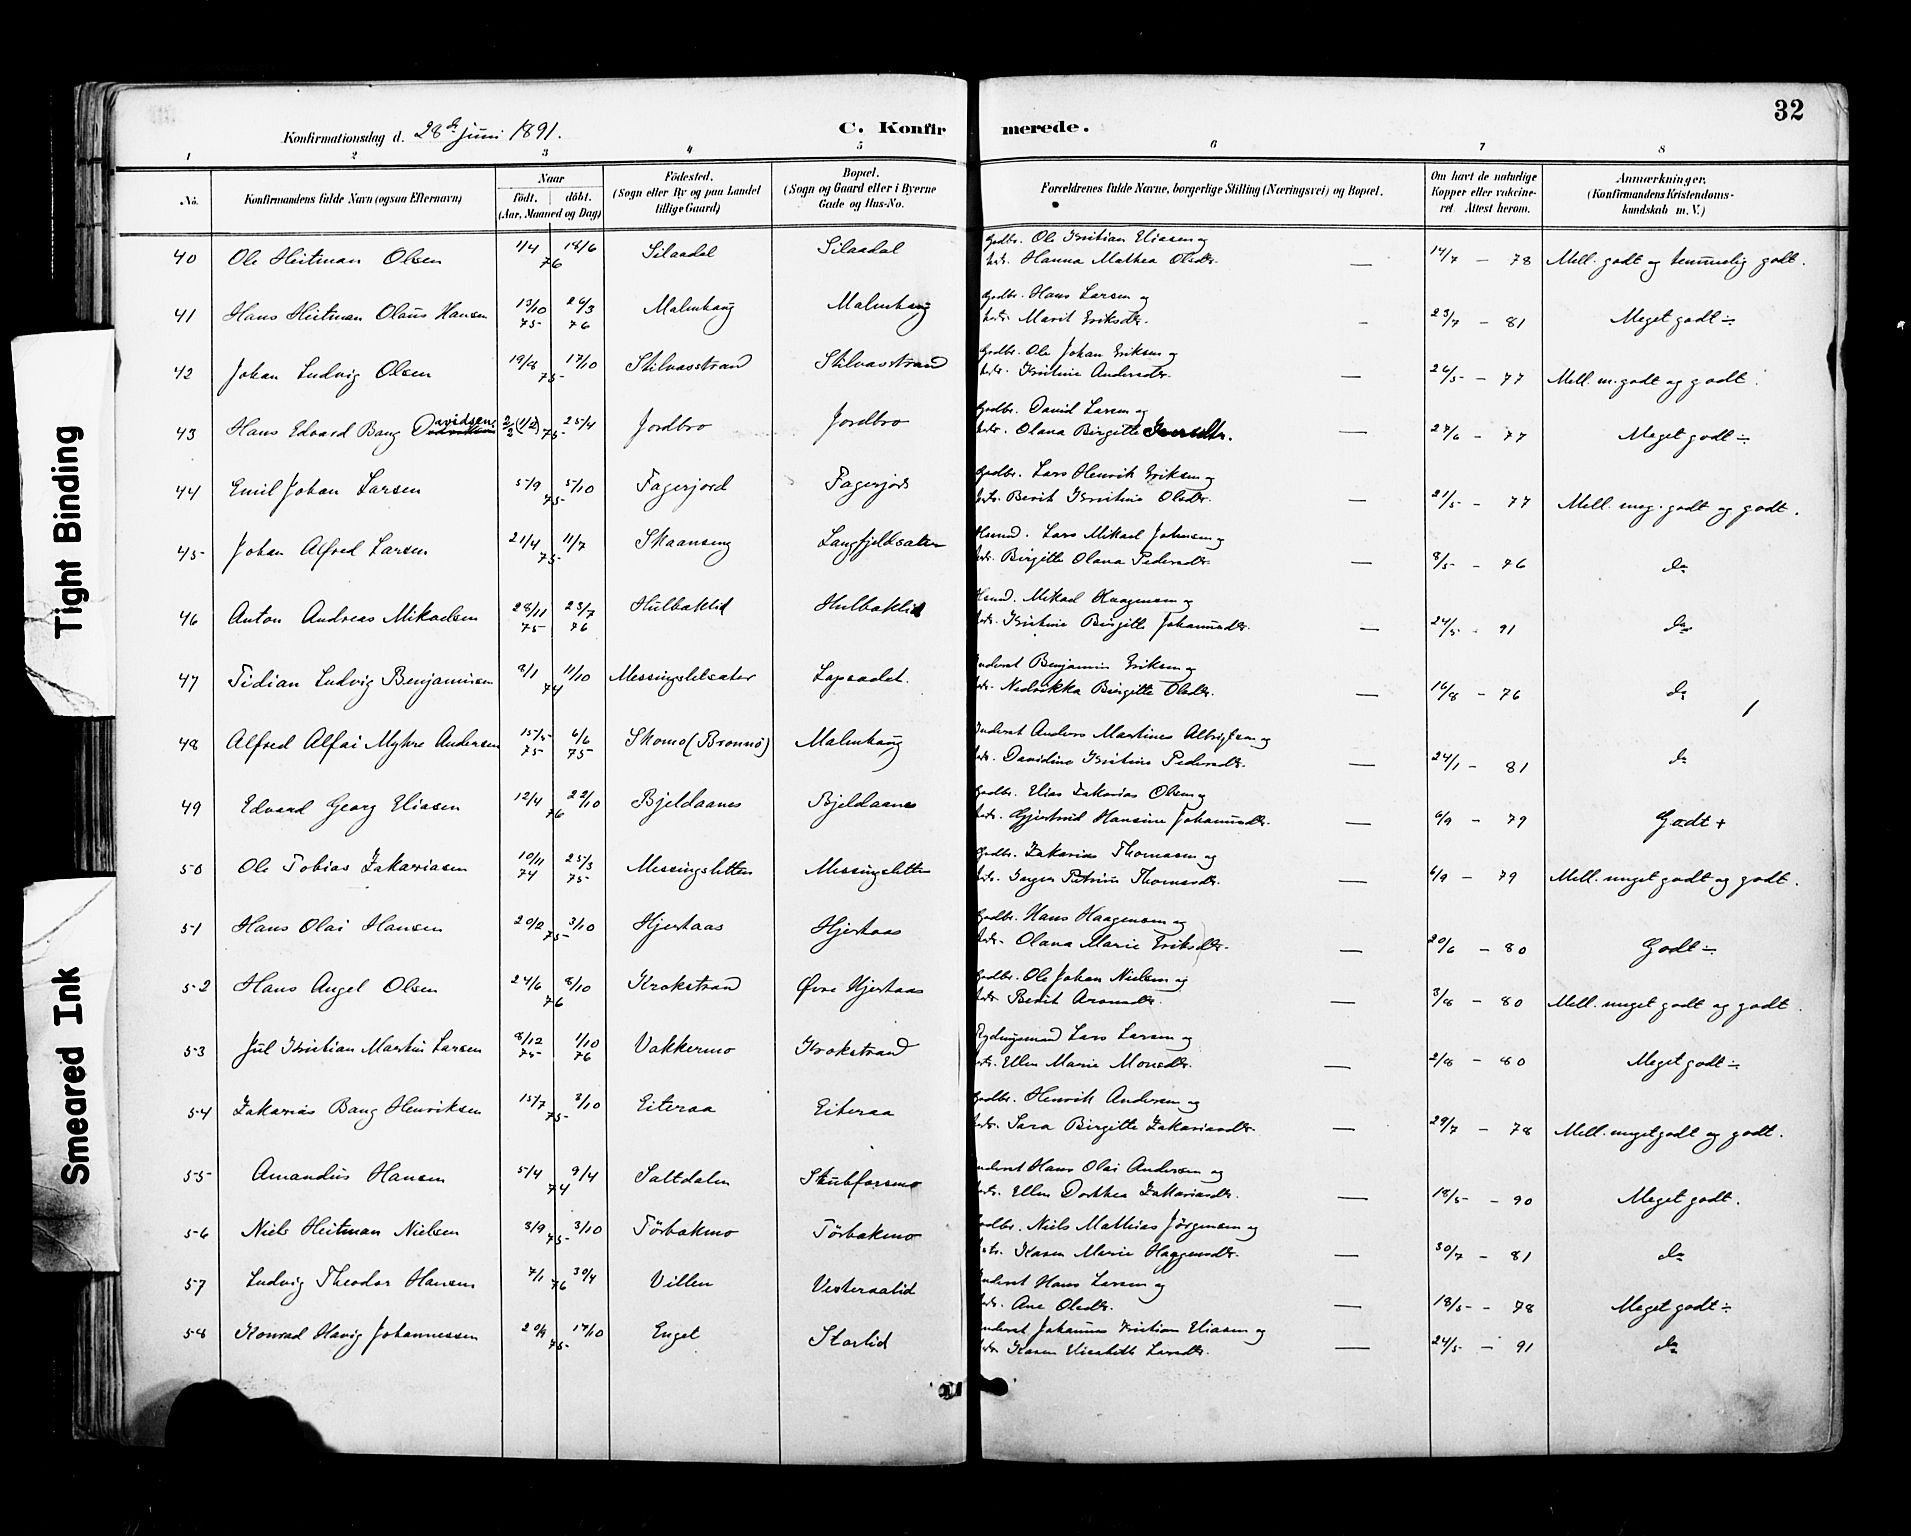 32
Konfirmationsdag d. 28de juni 1891.
C. Konfirmerede.
1 2 3 4 5 6 7 8
No. Konfirmandens fulde Navn (ogsaa Efternavn) Naar födt. döbt. (Aar, Maaned og Dag) Födested. (Sogn eller By og paa Landet tillige Gaard) Bopæl. (Sogn og Gaard eller i Byerne Gade og Hus-No. Forældrenes fulde Navne, borgerlige Stilling (Næringsvei) og Bopæl. Om havt de naturlige Kopper eller vakcineret Attest herom. Anmærkninger, (Konfirmandens Kristendomskundskab m. V.)
40 Ole Heitman Olsen 1/4 18/6 76 Silaadal Silaadal Gadbr. Ole Kristian Eliasen og
Hanna Mathea Olsdtr. — 14/7 - 78 Mell. godt og temmelig godt.
41 Hans Heitman Olaus Hansen 13/10 75 26/3 76 Malmhaug Malmhaug Gadbr. Hans Larsen og
Marit Eriksdtr. - 23/7 - 81 Meget godt ÷
42 Johan Ludvig Olsen 19/8 17/10 75 Stilvasstrand Stilvasstrand Gadbr. Ole Johan Eriksen og
Kristine Andersdtr. — 26/5 - 77 Mell. m. godt og godt.
43 Hans Edvard Bang Davidsen 2/2 (1/2) 25/4 75 Jordbro Jordbro Gadbr. David Larsen og
Olana Birgitte — 27/6 - 77 Meget godt ÷
44 Emil Johan Larsen 5/9 5/10 75 Fagerjord Fagerjord Gadbr. Lars Henrik Eriksen og
Berit Kristine Olsdtr. — 21/5 - 77 Mell. meg. godt og godt.
45 Johan Alfred Larsen 21/4 11/7 75 Skaanseng Langfjeldsater Husmd. Lars Mikael Johnsen og
Birgitte Olana Pedersdtr. — 8/5 - 76 do
46 Anton Andreas Mikaelsen 28/11 75 23/7 76 Hulbaklid Hulbaklid Husmd. Mikael Haagensen og
Kristine Birgitte Johannesdtr. — 24/5 - 91 do
47 Tidian Ludvig Benjaminsen 8/1 11/10 74 Messingsletsater Lapsadet. Inderst Benjamin Eriksen og
Nedrikka Birgitte Olsdtr. — 16/8 - 76 do
48 Alfred Alfai Myhre Andersen 15/5 75 6/6 75 Skomo (Brønnø) Malmhaug Inderst Anders Martines Albrigtsen og
Davidine Kristine Pedersdtr. — 24/1 - 81 do
49 Edvard Georg Eliasen 12/4 22/10 76 Bjeldaanes Bjeldaanes Gadbr. Elias Zakarias Olsen og
Gjertrud Hansine Johannesdtr. — 6/9 - 79 Godt +
50 Ole Tobias Zakariasen 10/11 74 25/3 75 Messingsletten Messingsletten Gadbr. Zakarias Thomasen og
Petrine Thomasdtr. — 6/9 - 79 Mell. meget godt og godt.
51 Hans Olai Hansen 20/2 3/10 75 Hjertaas Hjertaas Gadbr. Hans Haagensen og
Olana Marie Eriksdtr. — 20/6 - 80 Godt ÷
52 Hans Angel Olsen 24/6 8/10 76 Krokstrand Øvre Hjertaas Gadbr. Ole Johan Nielsen og
Berit Aronsdtr. — 3/8 - 80 Mell. meget godt og godt.
53 Jul Kristian Martin Larsen 8/12 75 1/10 76 Vakkermo Krokstrand Rydningsmand Lars Larsen og
Ellen Marie Monsdtr. — 2/8 - 80 Meget godt ÷
54 Zakarias Bang Henriksen 15/7 3/10 75 Eiteraa Eiteraa Gadbr. Henrik Andersen og
Sara Birgitte Zakariasdtr. — 29/7 - 78 Mell. meget godt og godt.
55 Amandus Hansen 5/4 9/4 74 Saltdalen Stubforsmo Inderst Hans Olai Andersen og
Ellen Dorthea Zakariasdtr. — 18/5 - 90 Meget godt.
56 Niels Heitman Nielsen 8/9 3/10 75 Tørbakmo Tørbakmo Gadbr. Niels Mathias Jørgensen og
Karen Marie Haagensdtr. — 30/7 - 81 do
57 Ludvig Theodor Hansen 7/1 30/4 76 Villen Vesteraalid Inderst Hans Larsen og
Ane Olsdtr. — 18/5 - 78 Meget godt ÷
58 Konrad Havig Johannessen 20/9 17/10 75 Enget Storlid Inderst Johannes Kristian Eliasen og
Karen Elisabeth Larsdtr. — 24/5 - 91 do
Tight Binding
Smeared Ink